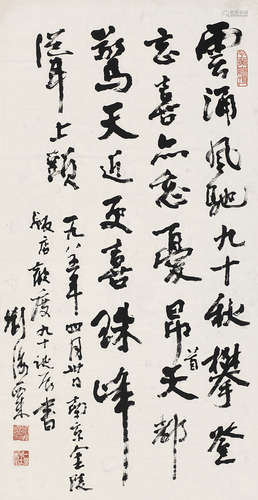 雲涌風馳九十秋攀登
忘喜亦忘憂昂首天都
驚天近更喜珠峰
聳上頭
一九八五年四月卅日南京金陵
飯店歡度九十誕辰書
劉海粟